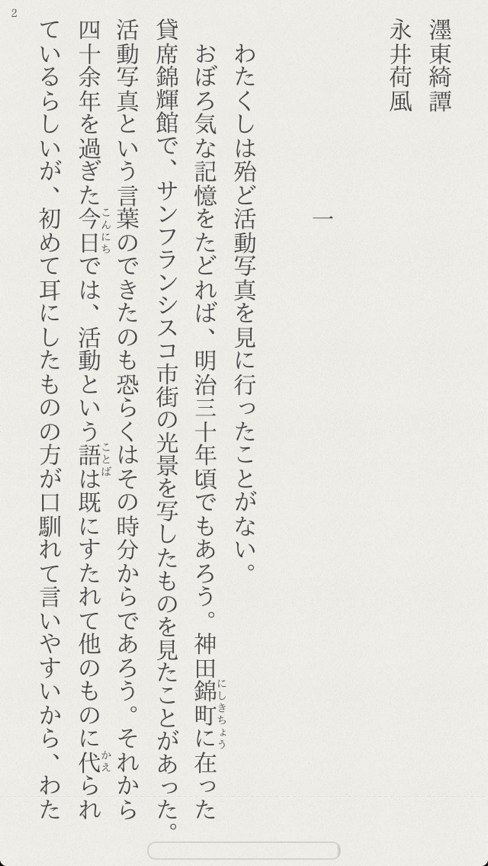 2
濹東綺譚
永井荷風
一
わたくしは殆ど活動写真を見に行ったことがない。
おぼろ気な記憶をたどれば、明治三十年頃でもあろう。神田錦町に在った
にしきちょう
貸席錦輝館で、サンフランシスコ市街の光景を写したものを見たことがあった。
活動写真という言葉のできたのも恐らくはその時分からであろう。それから
四十余年を過ぎた今日では、活動という語は既にすたれて他のものに代られ
こんにち
ことば
かえ
ているらしいが、初めて耳にしたものの方が口馴れて言いやすいから、わた